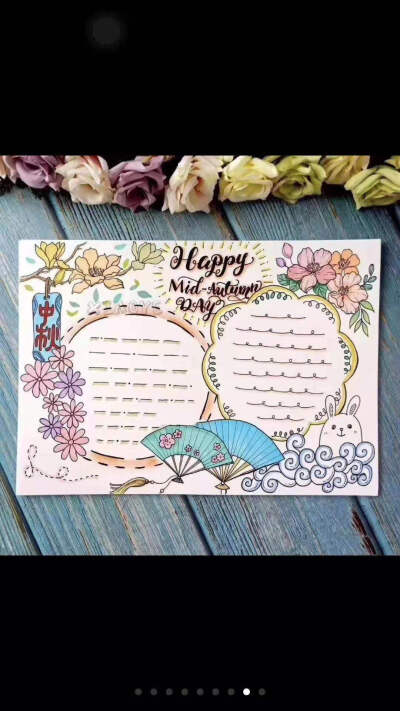 Happy
Mid-Autumn
DAY
中秋